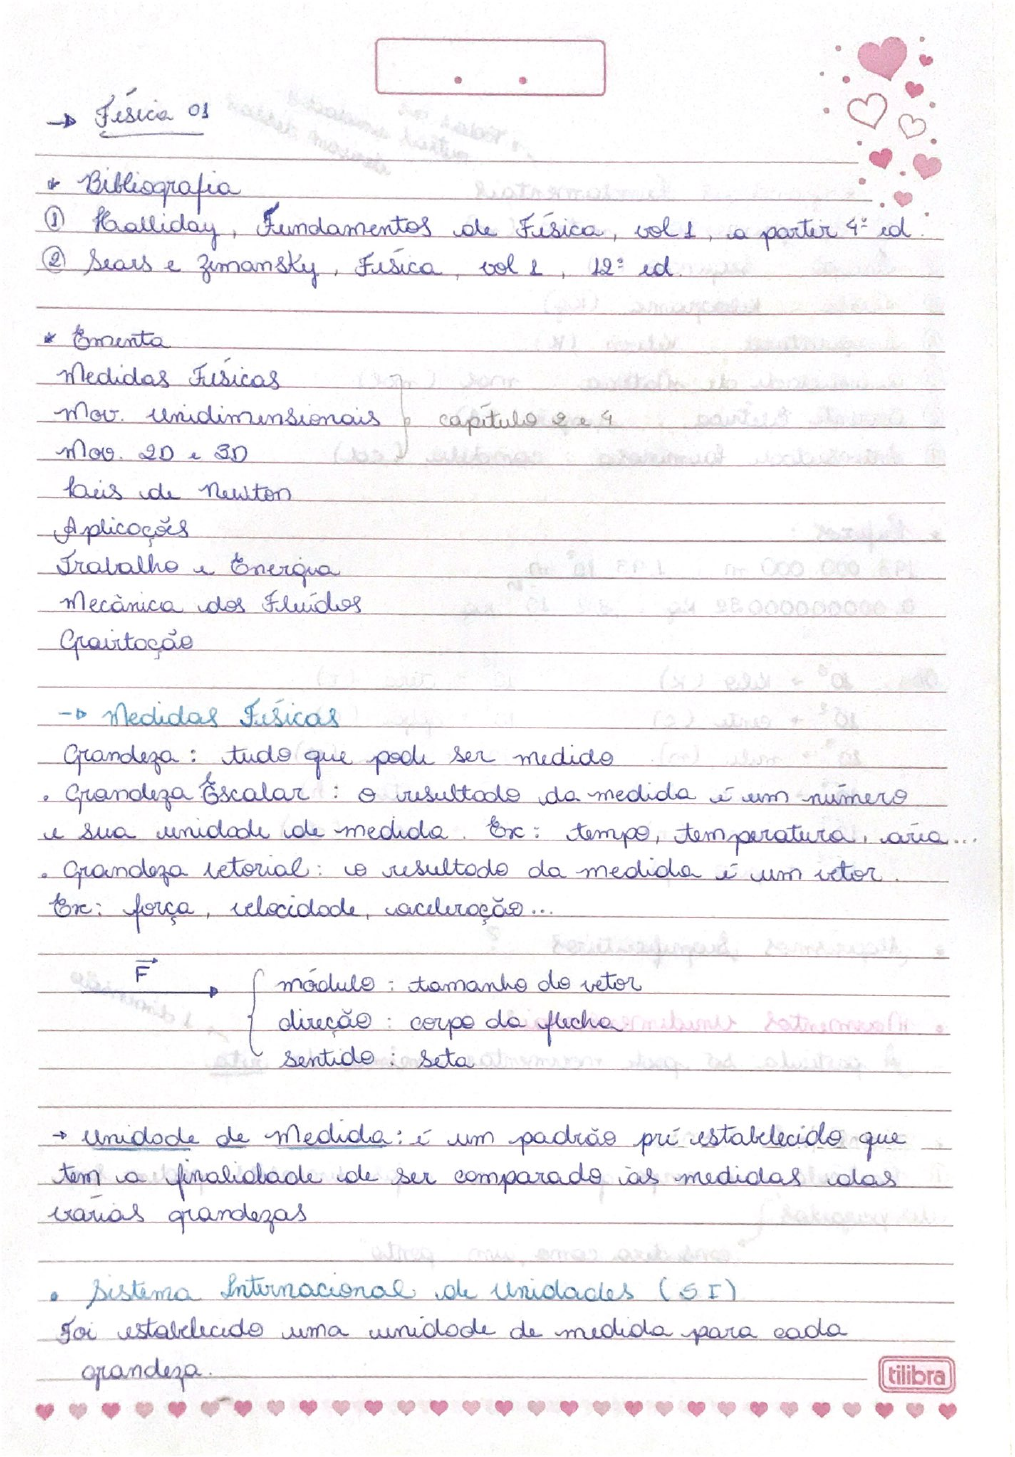 → Física 01
* Bibliografia
① Halliday, Fundamentos de Física, vol 1, a partir 4ª ed.
② Sears e Zemansky, Física, vol 1, 12ª ed.
* Ementa
Medidas Físicas
Mov. unidimensionais } capítulo 2 e 4
Mov. 2D e 3D
Leis de Newton
Aplicações
Trabalho e Energia
Mecânica dos Fluídos
Gravitação
→ Medidas Físicas
Grandeza : tudo que pode ser medido
. Grandeza Escalar : o resultado da medida é um número
e sua unidade de medida. Ex: tempo, temperatura, área...
. Grandeza vetorial : o resultado da medida é um vetor.
Ex: força, velocidade, aceleração...
F⃗
módulo : tamanho do vetor
direção : corpo da flecha
sentido : seta
→ unidade de Medida: é um padrão pré estabelecido que
tem a finalidade de ser comparado às medidas das
várias grandezas
• Sistema Internacional de Unidades (SI)
Foi estabelecido uma unidade de medida para cada
grandeza.
tilibra